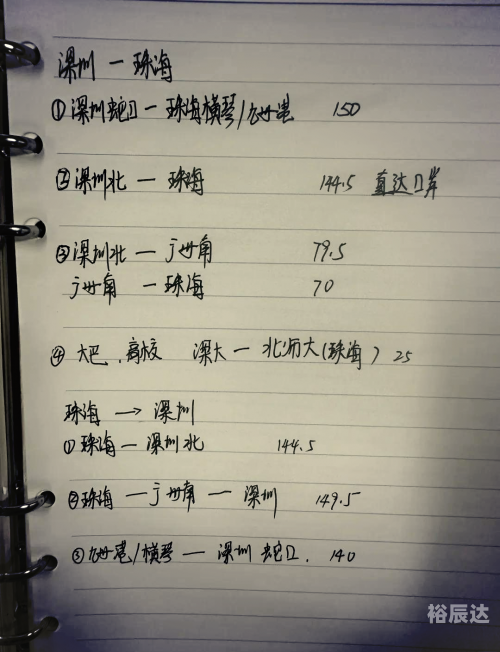 深圳 — 珠海
①深圳蛇口 — 珠海横琴/九州港 150
②深圳北 — 珠海 144.5 直达口岸
③深圳北 — 广州南 79.5
广州南 — 珠海 70
④大巴、高校 深大 — 北师大(珠海) 25
珠海 → 深圳
①珠海 — 深圳北 144.5
②珠海 — 广州南 — 深圳 149.5
③九州港/横琴 — 深圳蛇口. 140
裕辰达